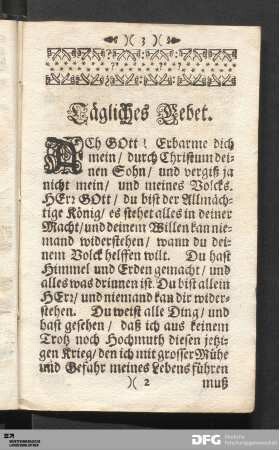 )( 3 )(
Tägliches Gebet.
ACh GOtt! Erbarme dich
mein/ durch Christum dei-
nen Sohn/ und vergiß ja
nicht mein/ und meines Volcks.
HErr GOtt/ du bist der Allmäch-
tige König/ es stehet alles in deiner
Macht/ und deinem Willen kan nie-
mand widerstehen/ wann du dei-
nem Volck helffen wilt. Du hast
Himmel und Erden gemacht/ und
alles was drinnen ist. Du bist allein
HErr/ und niemand kan dir wider-
stehen. Du weist alle Ding/ und
hast gesehen/ daß ich aus keinem
Trotz noch Hochmuth diesen jetzi-
gen Krieg/ den ich mit grosser Mühe
und Gefahr meines Lebens führen
)( 2 muß
DFG